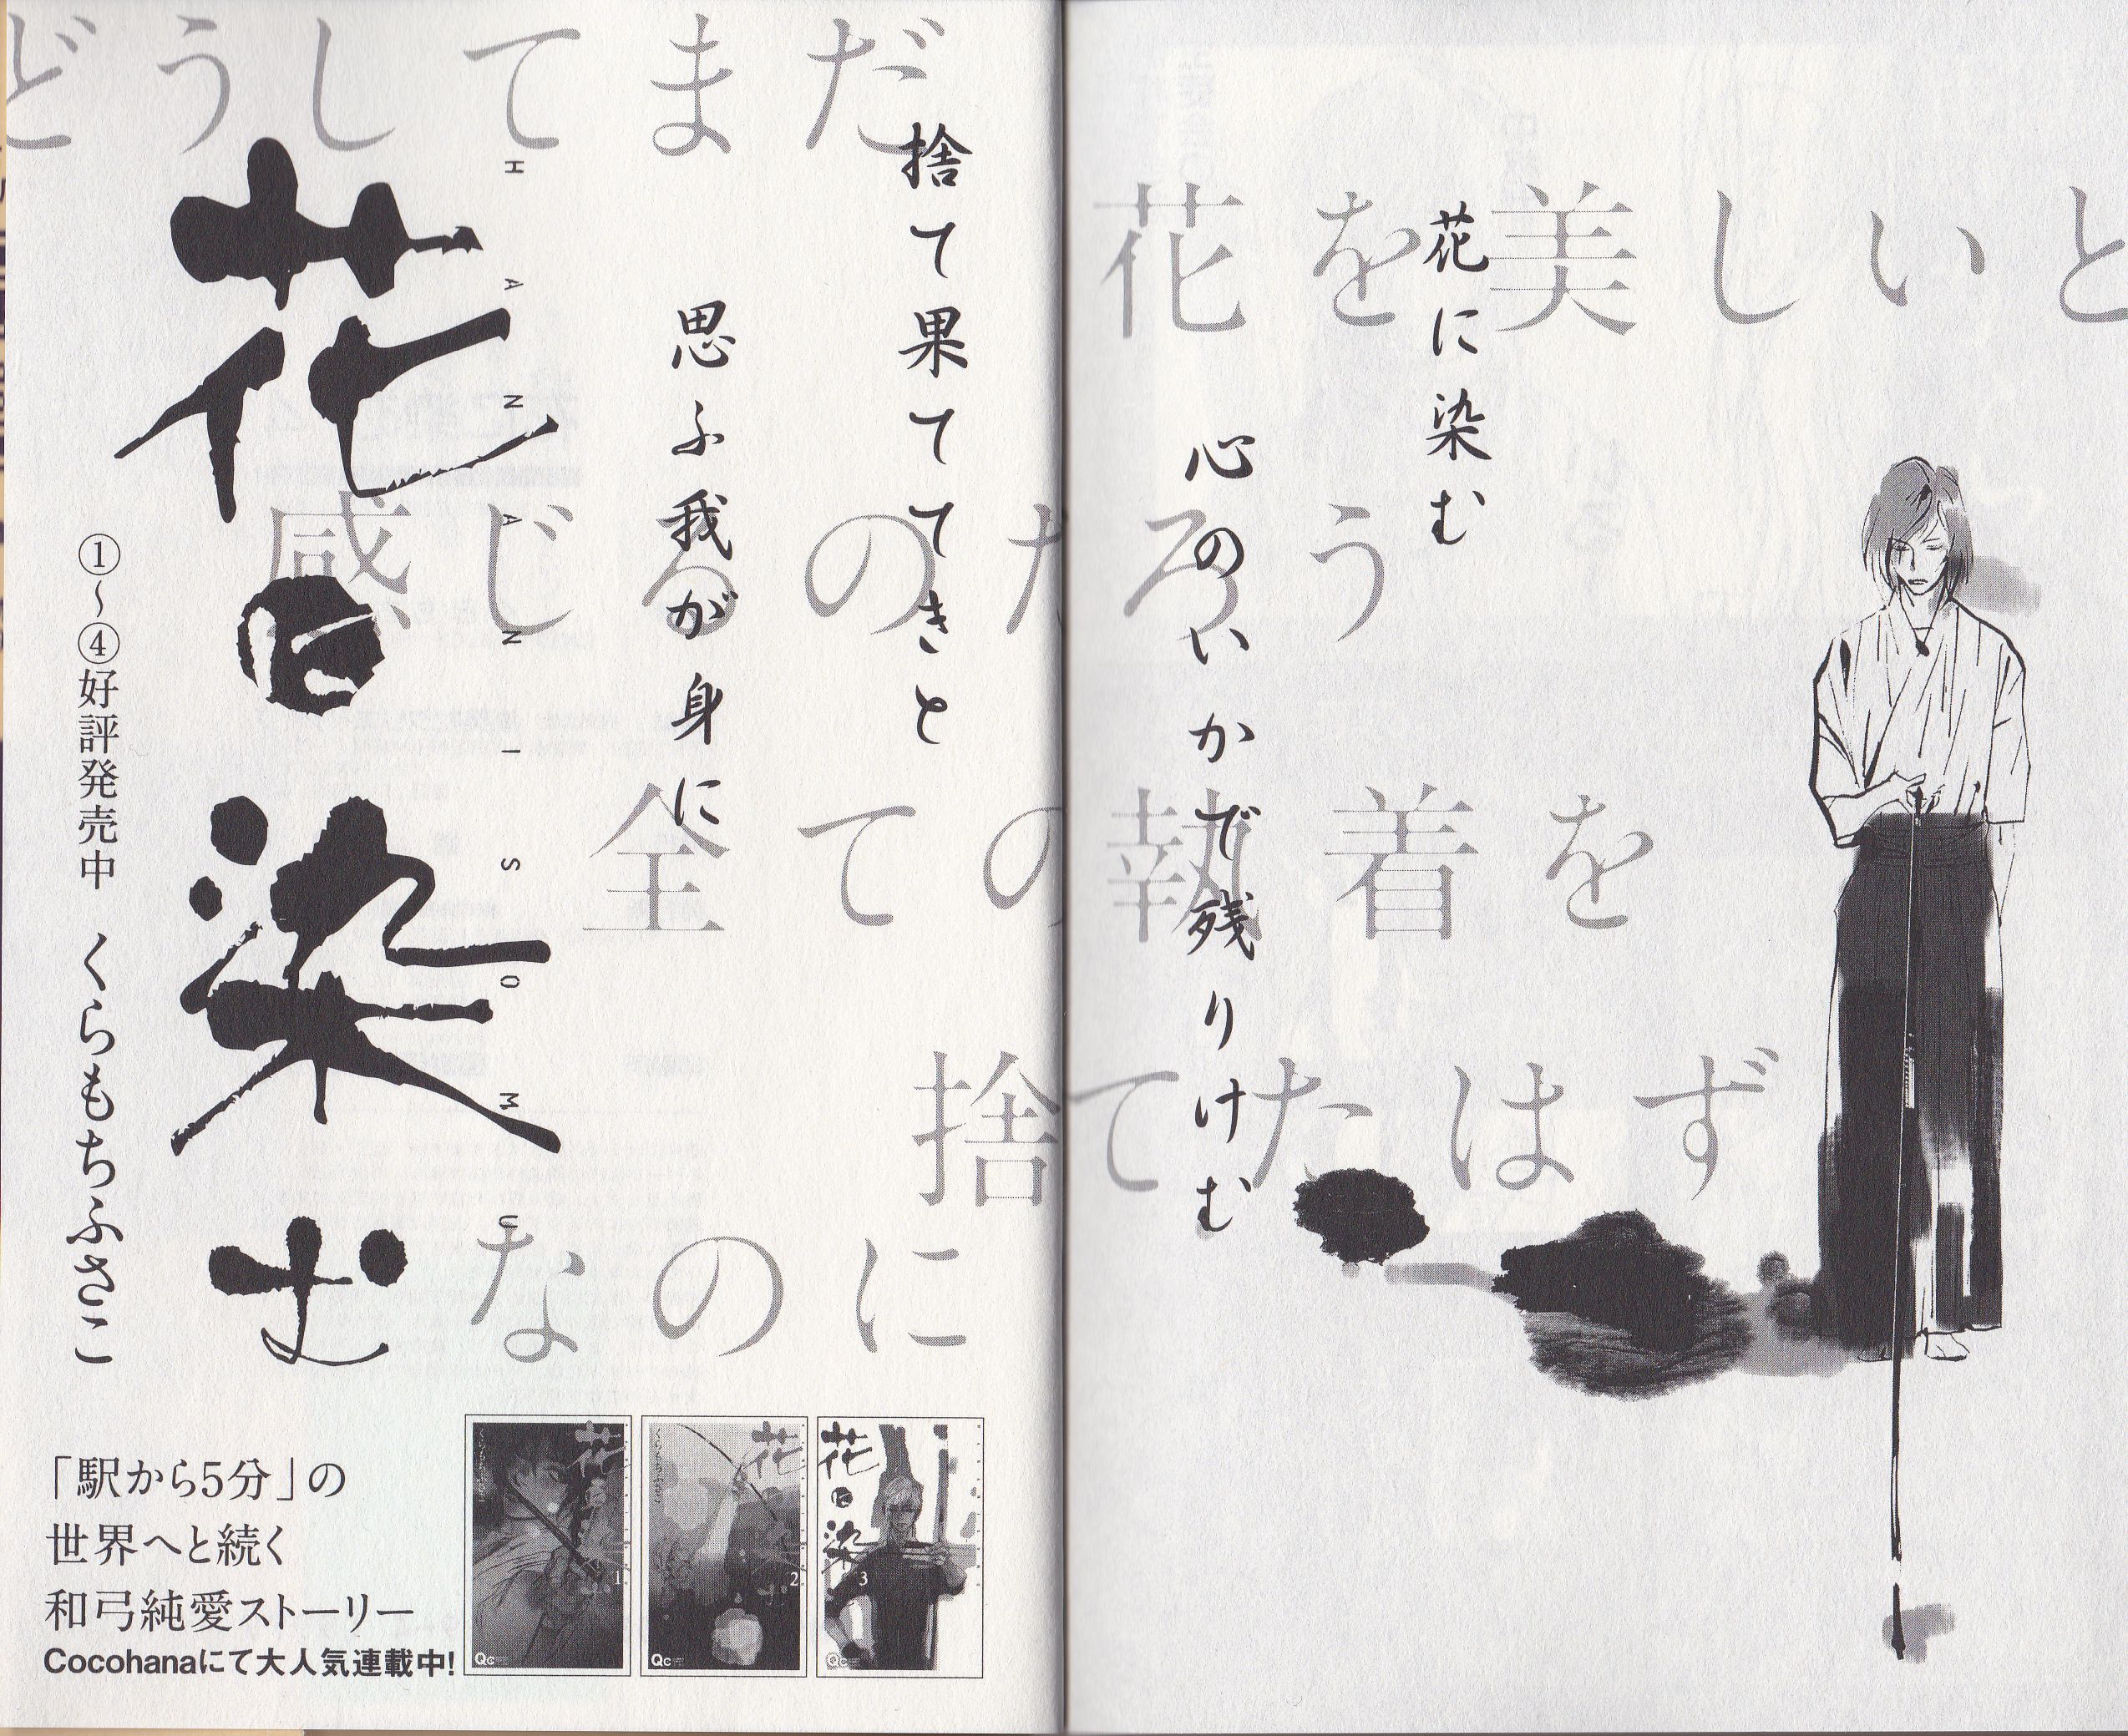 花に染む
心のいかで残りけむ
捨て果ててきと
思ふ我が身に
どうしてまだ
花を美しいと
感じるのだろう
全ての執着を
捨てたはず
なのに
花に染む
HANANISOMU
①～④好評発売中 くらもちふさこ
「駅から5分」の
世界へと続く
和弓純愛ストーリー
Cocohanaにて大人気連載中!
花
1
Qc
花
2
Qc
花に染
3
Qc